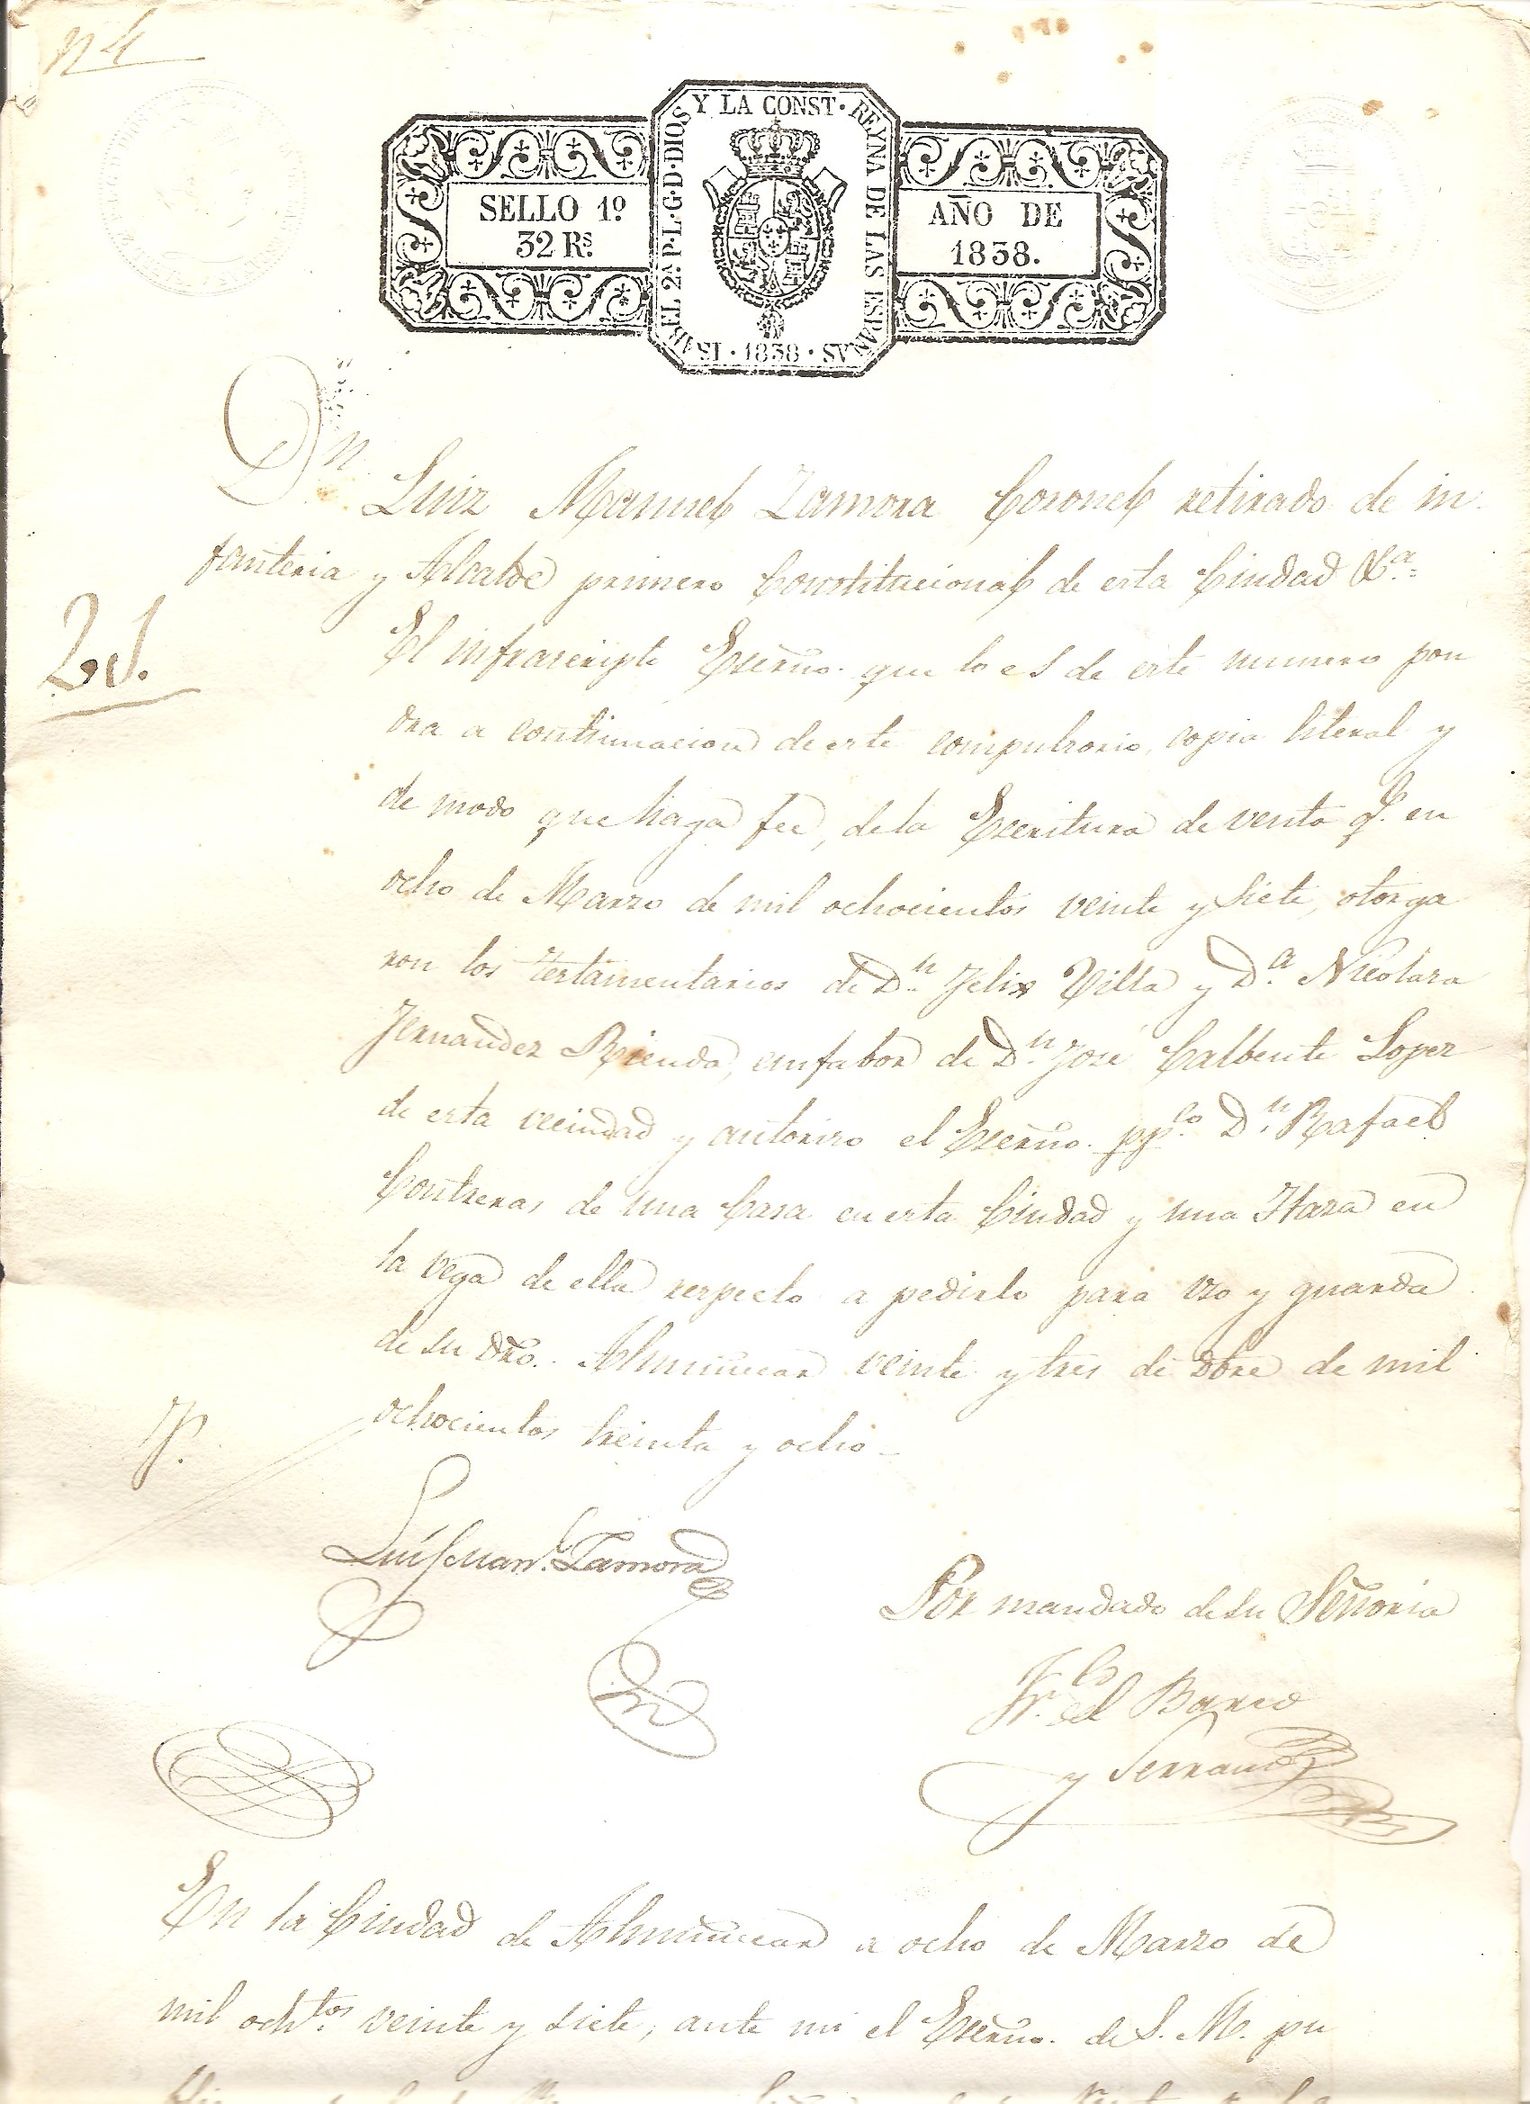 n 4
ISABEL 2ª P. L. G. D. DIOS Y LA CONST. REYNA DE LAS ESPAÑAS · 1838 ·
SELLO 1º
32 Rs.
AÑO DE
1838.
Dn. Luiz Manuel Zamora Coronel retirado de in
fanteria y Alcalde primero Constitucional de esta Ciudad &a.=
El infrascripto Escrño. que lo es de este numero pon
dra a continuacion de este compulsorio, copia literal y
de modo que haga fee, de la Escritura de venta q.e en
ocho de Marzo de mil ochocientos veinte y siete, otorga
ron los testamentarios de Dn. Felix Villa y Da. Nicolasa
Fernandez Rienda, en fabor de Dn. José Calbente Lopez
de esta vecindad y autorizo el Escrño. pp.co Dn. Rafael
Contreras, de una Casa en esta Ciudad y una Haza en
la vega de ella respecto a pedirlo para uso y guarda
de su dro. Almuñecar veinte y tres de dbre de mil
ochocientos treinta y ocho
Luis Man.l Zamora
Por mandado de su Señoria
Fr.co del Barco
y Serrano
En la Ciudad de Almuñecar a ocho de Marzo de
mil ochtos. veinte y siete, ante mi el Escrño. de S. M. pu